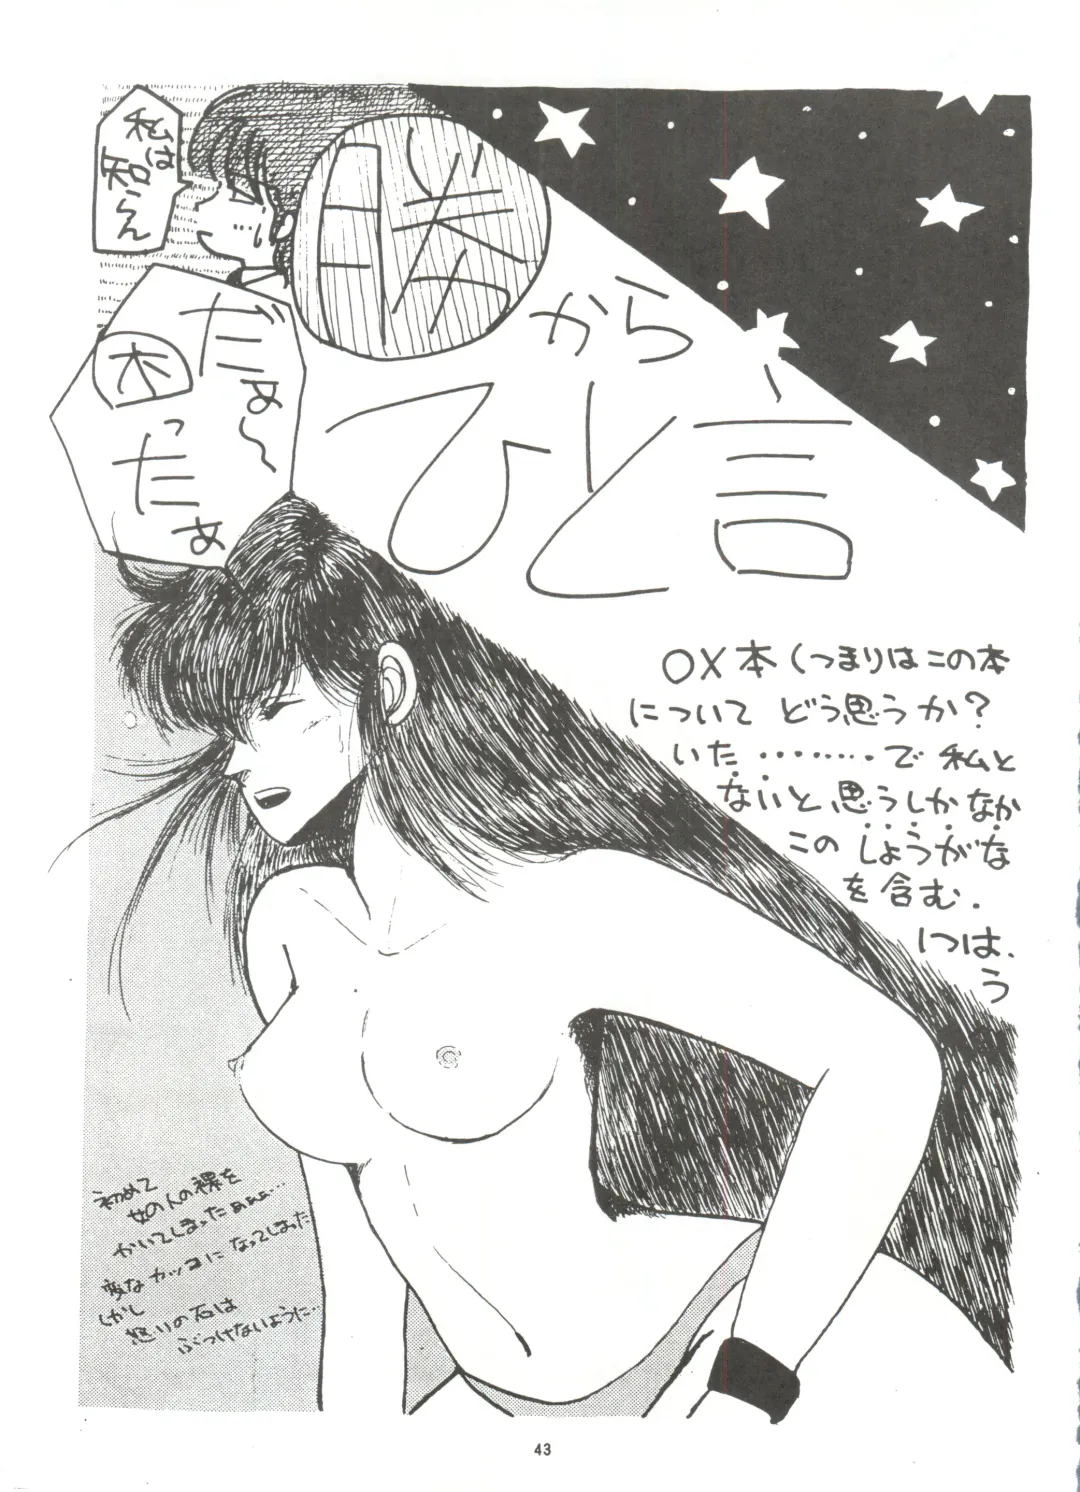 私は
知らん
だぁ〜
困
ったぁ
勝
から
ひと言
○×本(つまりはこの本
について どう思うか?
いた・・・・・・・・で 私と
ないと思うしかなか
この しょうがな
を含む.
いつは.
う
初めて
女の人の裸を
かいてしまったぁぁぁ…
変なカッコになってしまった
しかし
怒りの石は
ぶつけないように…
43